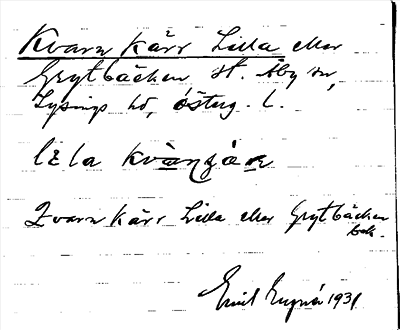 Kvarn kärr Lilla eller
Grytbäcken St. Åby sn,
Lysings hd, Österg. l.
lɩla kvànɟàr
Kvarn kärr Lilla eller Grytbäcken
bek.
Emil 1931